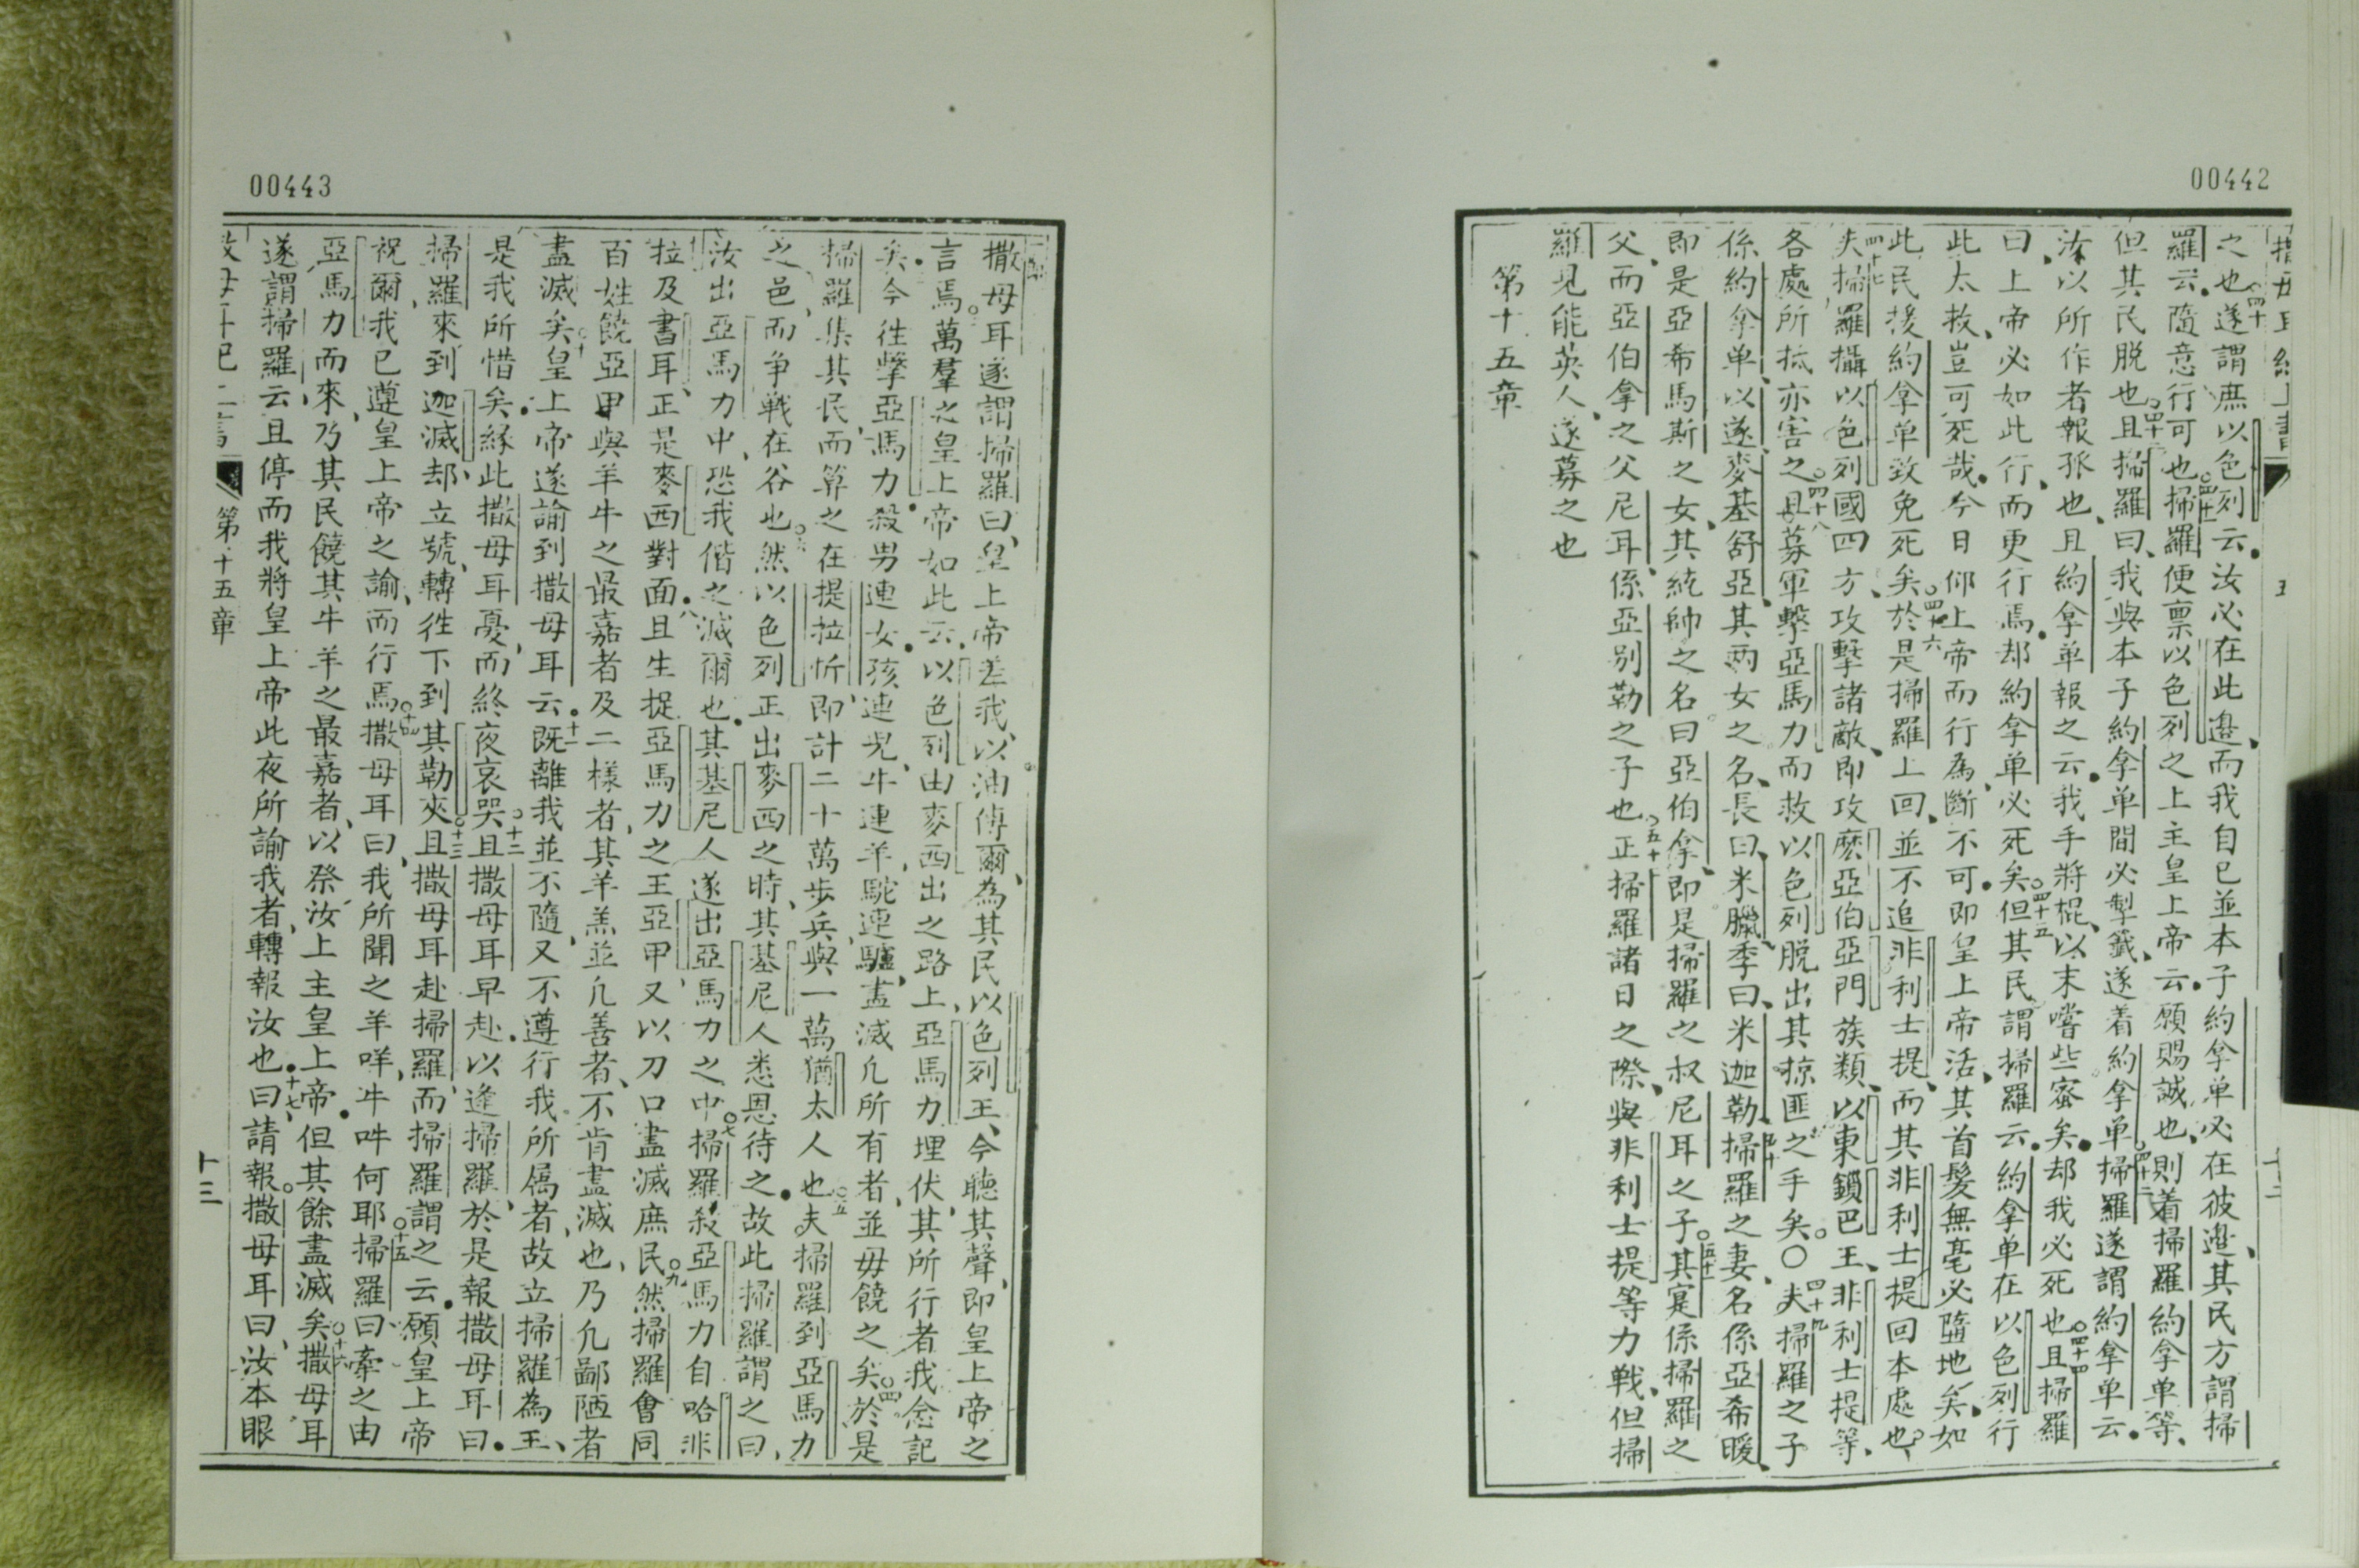 00442
之也四十遂謂庶以色列云汝必在此邉而我自己並本子約拿単必在彼邉其民方謂掃
羅云隨意行可也四十一掃羅便禀以色列之上主皇上帝云願賜誠也則着掃羅約拿单等
但其民脱也四十二且掃羅曰我與本子約拿单間必掣籤遂着約拿单四十三掃羅遂謂約拿单云
汝以所作者報孤也且約拿单報之云我手將棍以末嚐些蜜矣却我必死也四十四且掃羅
曰上帝必如此行而更行焉却約拿单必死矣四十五但其民謂掃羅云約拿单在以色列行
此太救豈可死哉今日仰上帝而行為斷不可即皇上帝活其首髮無毫必墮地矣如
此民援約拿单致免死矣四十六於是掃羅上回並不追非利士提而其非利士提回本處也
四十七夫掃羅攝以色列國四方攻擊諸敵即攻麽亞伯亞門族類以東鎖巴王非利士提等
各處所抵亦害之四十八且募軍擊亞馬力而救以色列脱出其掠匪之手矣〇四十九夫掃羅之子
係約拿单以遂麥基舒亞其两女之名長曰米臘季曰米迦勒五十掃羅之妻名係亞希暖
即是亞希馬斯之女其統帥之名曰亞伯拿即是掃羅之叔尼耳之子五十一其寔係掃羅之
父而亞伯拿之父尼耳係亞别勒之子也五十二正掃羅諸日之際與非利士提等力戰但掃
羅見能英人遂募之也
第十五章
00443
撒母耳遂謂掃羅曰皇上帝差我以油傅爾為其民以色列王今聽其聲即皇上帝之
言焉二萬羣之皇上帝如此云以色列由麥西出之路上亞馬力埋伏其所行者我念記
矣今徃擊亞馬力殺男連女孩連兒牛連羊駝連驢盡滅凢所有者並毋饒之矣四於是
掃羅集其民而算之在提拉忻即計二十萬步兵與一萬猶太人也五夫掃羅到亞馬力
之邑而争戰在谷也六然以色列正出麥西之時其基尼人悉恩待之故此掃羅謂之曰
汝出亞馬力中恐我偕之滅爾也其基尼人遂出亞馬力之中七掃羅殺亞馬力自哈非
拉及書耳正是麥西對面八且生捉亞馬力之王亞甲又以刀口盡滅庶民九然掃羅會同
百姓饒亞甲與羊牛之最嘉者及二樣者其羊羔並凢善者不肯盡滅也乃凢鄙陋者
盡滅矣十皇上帝遂諭到撒母耳云十一既離我並不隨又不遵行我所属者故立掃羅為王
是我所惜矣緣此撒母耳憂而終夜哀哭十二且撒母耳早赴以逢掃羅於是報撒母耳曰
掃羅來到迦滅却立號轉徃下到其勒夾十三且撒母耳赴掃羅而掃羅謂之云願皇上帝
祝爾我已遵皇上帝之諭而行焉十四撒母耳曰我所聞之羊咩牛吽何耶十五掃羅曰牽之由
亞馬力而來乃其民饒其牛羊之最嘉者以祭汝上主皇上帝但其餘盡滅矣十六撒母耳
遂謂掃羅云且停而我將皇上帝此夜所諭我者轉報汝也十七曰請報撒母耳曰汝本眼
第十五章
十三